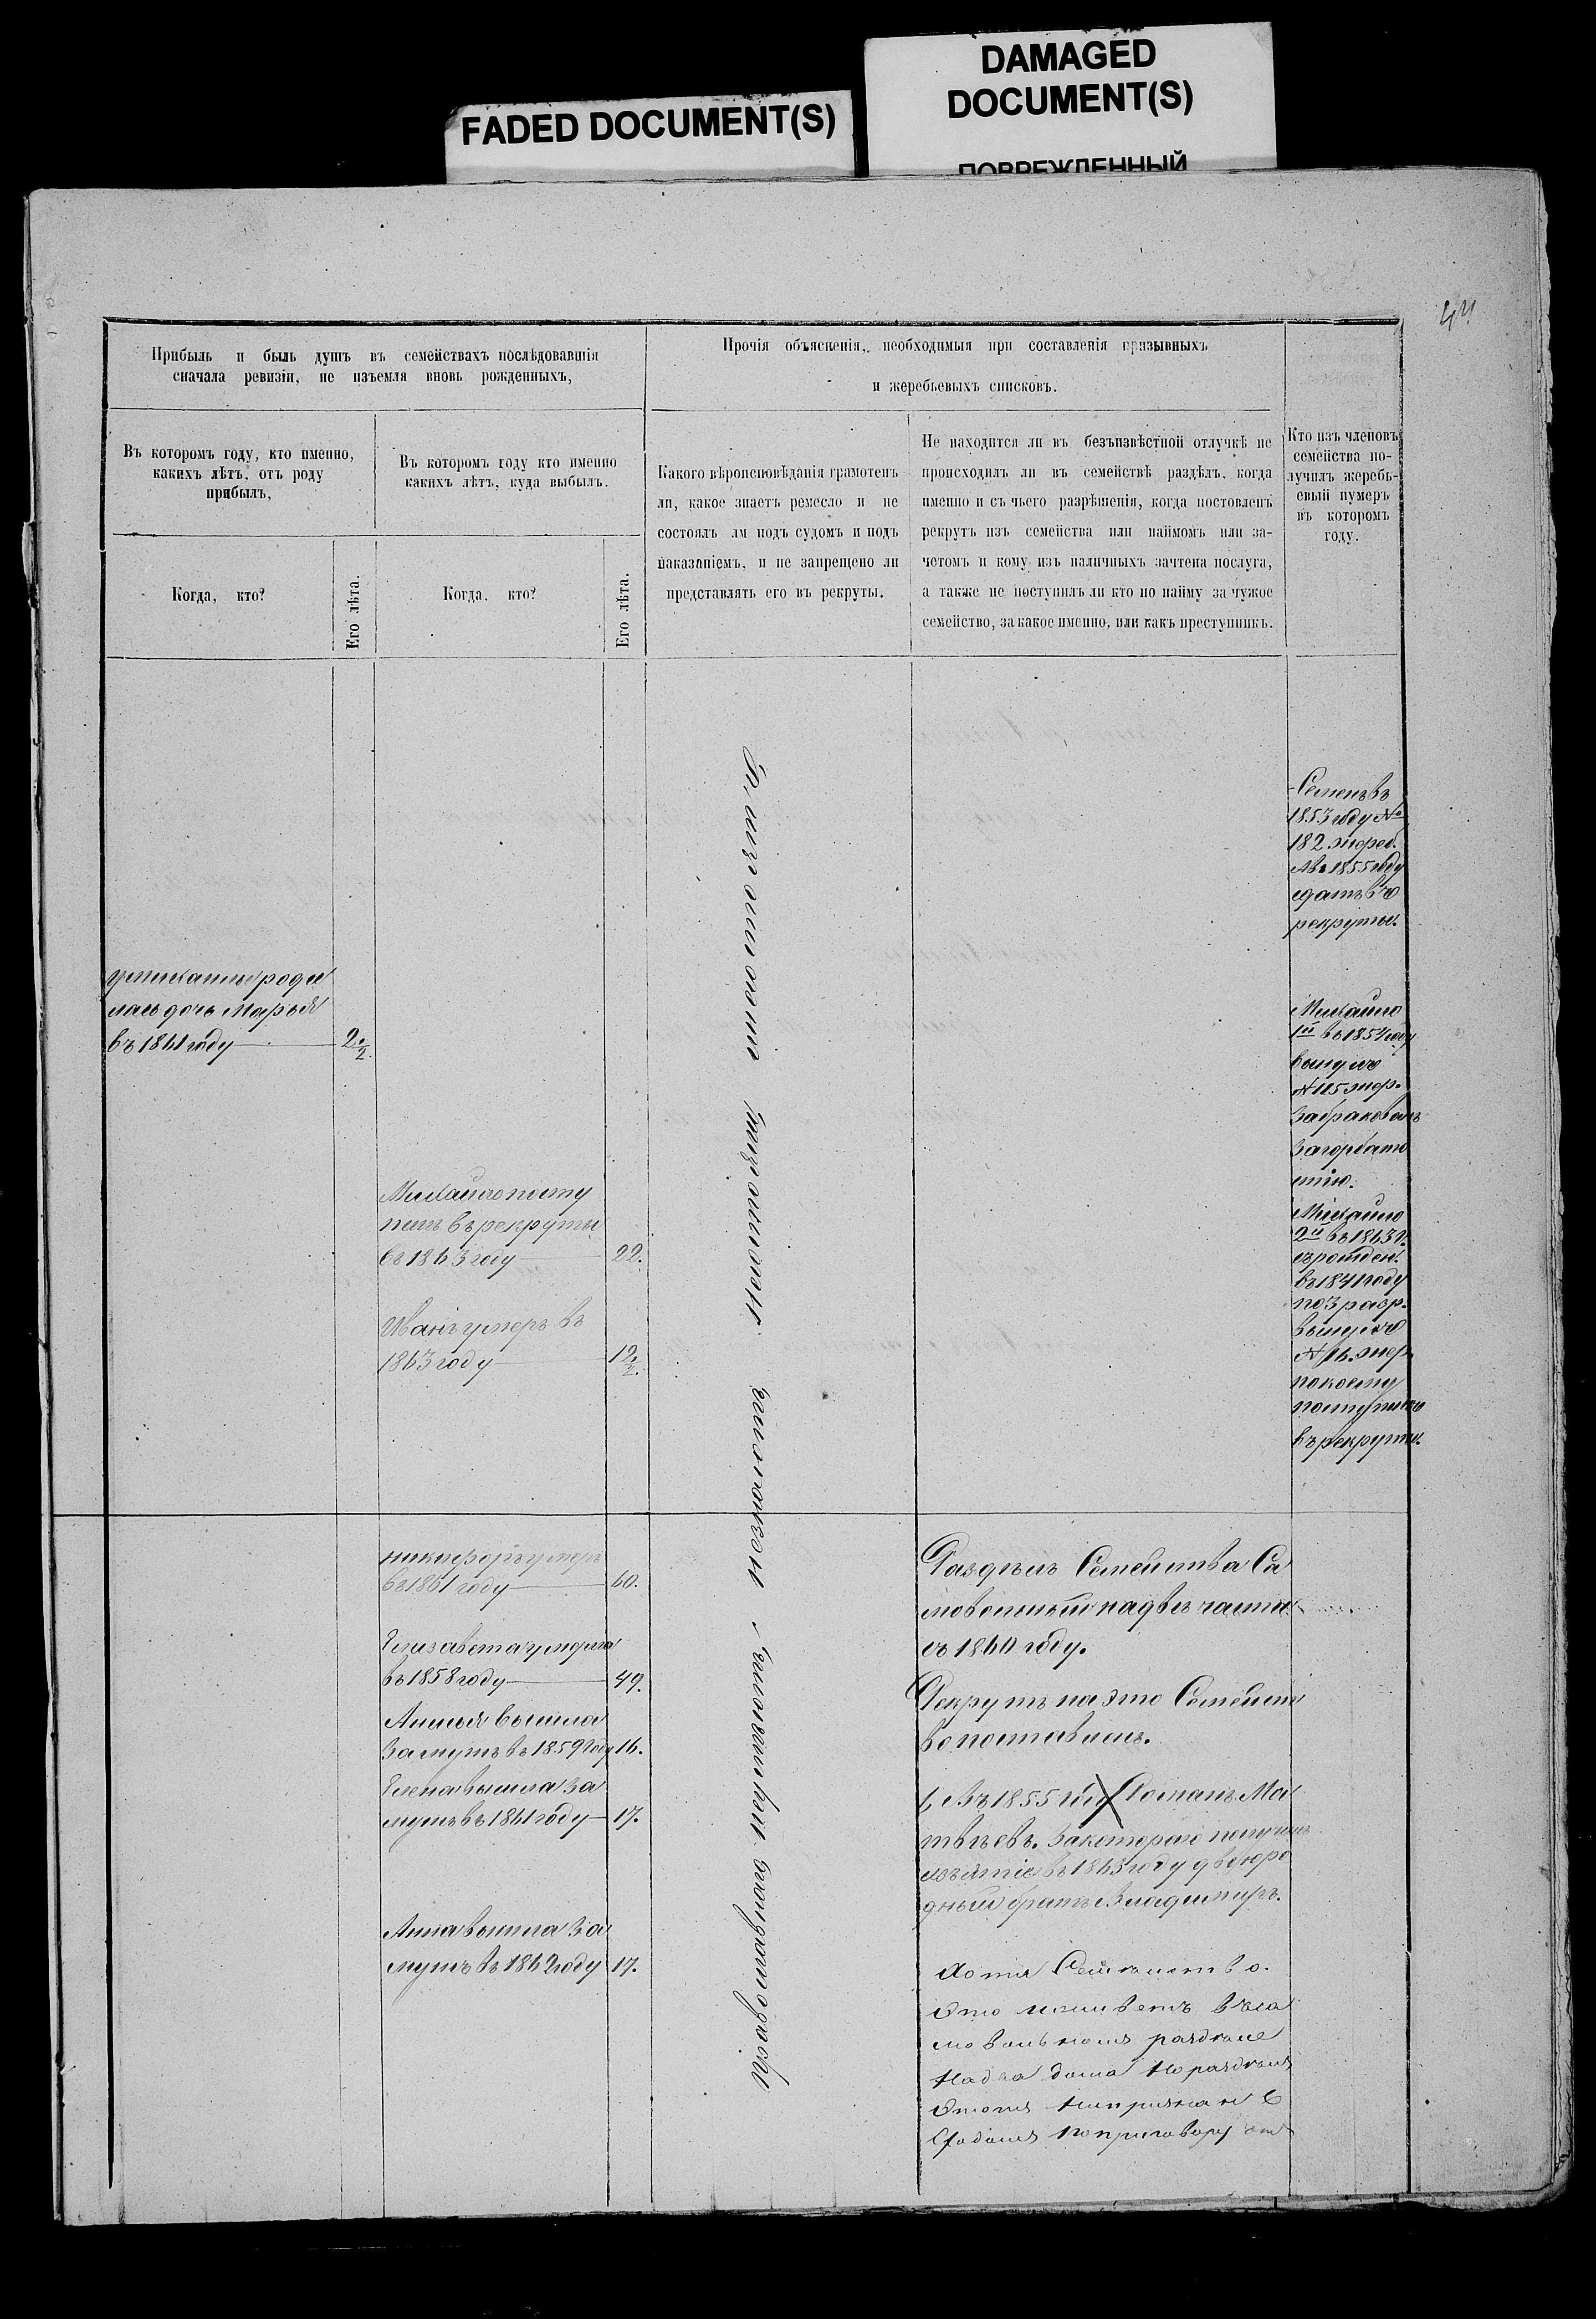 FADED DOCUMENT(S)
DAMAGED
DOCUMENT(S)
ПОВРЕЖДЕННЫЙ
44
Прибыль и быль душъ въ семействахъ послѣдовавшія
сначала ревизіи, не изъемля вновь рожденныхъ,
Прочія объясненія, необходимыя при составленія призывныхъ
и жеребьевыхъ списковъ.
Въ которомъ году, кто именно,
какихъ лѣтъ, отъ роду
прибылъ,
Въ которомъ году кто именно
какихъ лѣтъ, куда выбылъ.
Какого вѣроисповѣданія грамотенъ
ли, какое знаетъ ремесло и не
состоялъ ли подъ судомъ и подъ
наказаніемъ, и не запрещено ли
представлять его въ рекруты.
Не находится ли въ безъизвѣстной отлучкѣ не
происходилъ ли въ семействѣ раздѣлъ, когда
именно и съ чьего разрѣшенія, когда постовленъ
рекрутъ изъ семейства или наймомъ или за-
четомъ и кому изъ наличныхъ зачтена послуга,
а также не поступилъ ли кто по найму за чужое
семейство, за какое именно, или какъ преступникъ.
Кто изъ членовъ
семейства по-
лучилъ жеребь-
евый нумеръ
въ которомъ
году.
Когда, кто?
Его лѣта.
Когда, кто?
Его лѣта.
роди
лась дочь Марья
въ 1861 году 2½
Михайло посту
пилъ въ рекруты
въ 1863 году 22.
Иванъ умеръ въ
1863 году 12/2.
Никифоръ умеръ
въ 1861 году 60.
Елизавета умерла
въ 1858 году 49.
вышла
замужъ въ 1859 году 16.
Елена вышла за
мужъ въ 1861 году 17.
Анна вышла за
мужъ въ 1862 году 17.
Православнаго
Раздѣлъ Семейства Са
мовольный на двѣ части
въ 1860 году.
Рекрутъ на это Семейст
во поставилъ.
Въ 1855 году Романъ Ма
твѣевъ. За котораго получилъ
въ 1863 году двоюро
дный братъ Владимиръ.
Хотя Семейство.
Это въ са
мовольномъ раздѣле
На два дома Но раздѣлъ
Этотъ
по приговору
Семенъ въ
1853 году №
182 жереб.
А въ 1855 году
сданъ въ
рекруты.
Михайло
1й въ 1854 году
вынулъ
№ 115 жер.
забракованъ
за горбато
стію.
Михайло
2й въ 1863 г.
въ 1841 году
по 3 разр.
вынулъ
№ 16. жер.
по коему
поступилъ
въ рекруты.